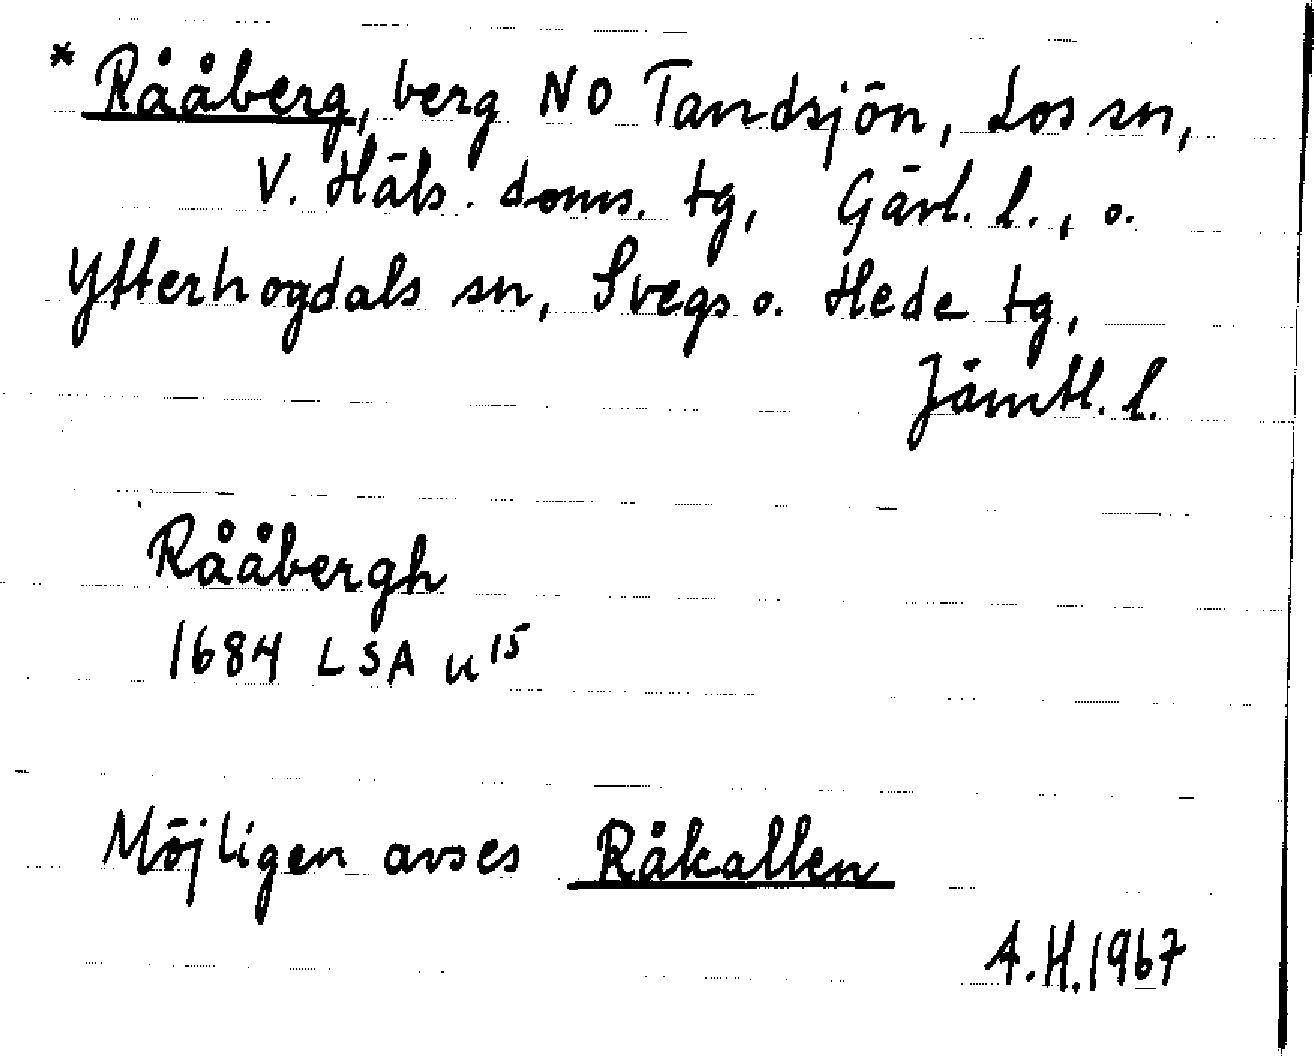 * Rååberg, berg NO Tandsjön, Los sn,
V. Häls. doms. tg, Gävl. l., o.
Ytterhogdals sn, Svegs o. Hede tg,
Jämtl. l.
Rååbergh
1684 LSA u15
Möjligen avses Råkallen
A.H. 1967